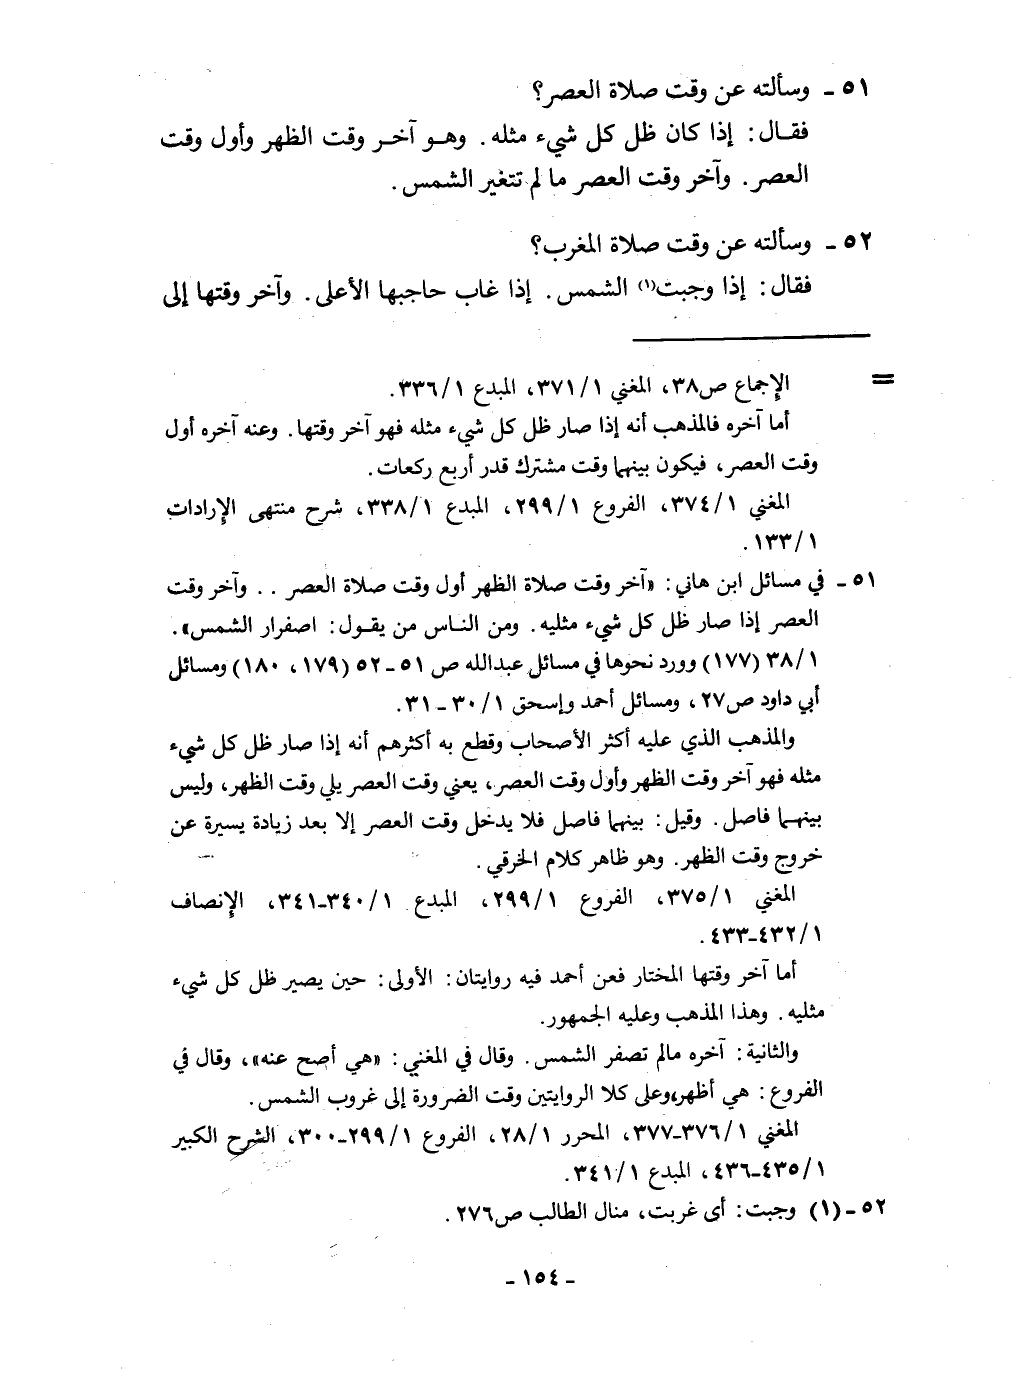 ٥١ ـ وسألته عن وقت صلاة العصر؟
فقال: إذا كان ظل كل شيء مثله. وهو آخر وقت الظهر وأول وقت
العصر. وآخر وقت العصر ما لم تتغير الشمس.
٥٢ ـ وسألته عن وقت صلاة المغرب؟
فقال: إذا وجبت(١) الشمس. إذا غاب حاجبها الأعلى. وآخر وقتها إلى
= الإجماع ص٣٨، المغني ٣٧١/١، المبدع ٣٣٦/١.
أما آخره فالمذهب أنه إذا صار ظل كل شيء مثله فهو آخر وقتها. وعنه آخره أول
وقت العصر، فيكون بينهما وقت مشترك قدر أربع ركعات.
المغني ٣٧٤/١، الفروع ٢٩٩/١، المبدع ٣٣٨/١، شرح منتهى الإرادات
١٣٣/١.
٥١ ـ في مسائل ابن هاني: «آخر وقت صلاة الظهر أول وقت صلاة العصر . . وآخر وقت
العصر إذا صار ظل كل شيء مثليه. ومن الناس من يقول: اصفرار الشمس».
٣٨/١ (١٧٧) وورد نحوها في مسائل عبدالله ص ٥١ ـ ٥٢ (١٧٩، ١٨٠) ومسائل
أبي داود ص٢٧، ومسائل أحمد وإسحق ٣٠/١ ـ ٣١.
والمذهب الذي عليه أكثر الأصحاب وقطع به أكثرهم أنه إذا صار ظل كل شيء
مثله فهو آخر وقت الظهر وأول وقت العصر، يعني وقت العصر يلي وقت الظهر، وليس
بينهما فاصل. وقيل: بينهما فاصل فلا يدخل وقت العصر إلا بعد زيادة يسيرة عن
خروج وقت الظهر. وهو ظاهر كلام الخرقي.
المغني ٣٧٥/١، الفروع ٢٩٩/١، المبدع ٣٤٠/١ـ٣٤١، الإنصاف
٤٣٢/١ـ٤٣٣.
أما آخر وقتها المختار فعن أحمد فيه روايتان: الأولى: حين يصير ظل كل شيء
مثليه. وهذا المذهب وعليه الجمهور.
والثانية: آخره مالم تصفر الشمس. وقال في المغني: «هي أصح عنه»، وقال في
الفروع: هي أظهر،وعلى كلا الروايتين وقت الضرورة إلى غروب الشمس.
المغني ٣٧٦/١ـ٣٧٧، المحرر ٢٨/١، الفروع ٢٩٩/١ـ٣٠٠، الشرح الكبير
٤٣٥/١ـ٤٣٦، المبدع ٣٤١/١.
٥٢ ـ(١) وجبت: أى غربت، منال الطالب ص٢٧٦.
ـ ١٥٤ ـ